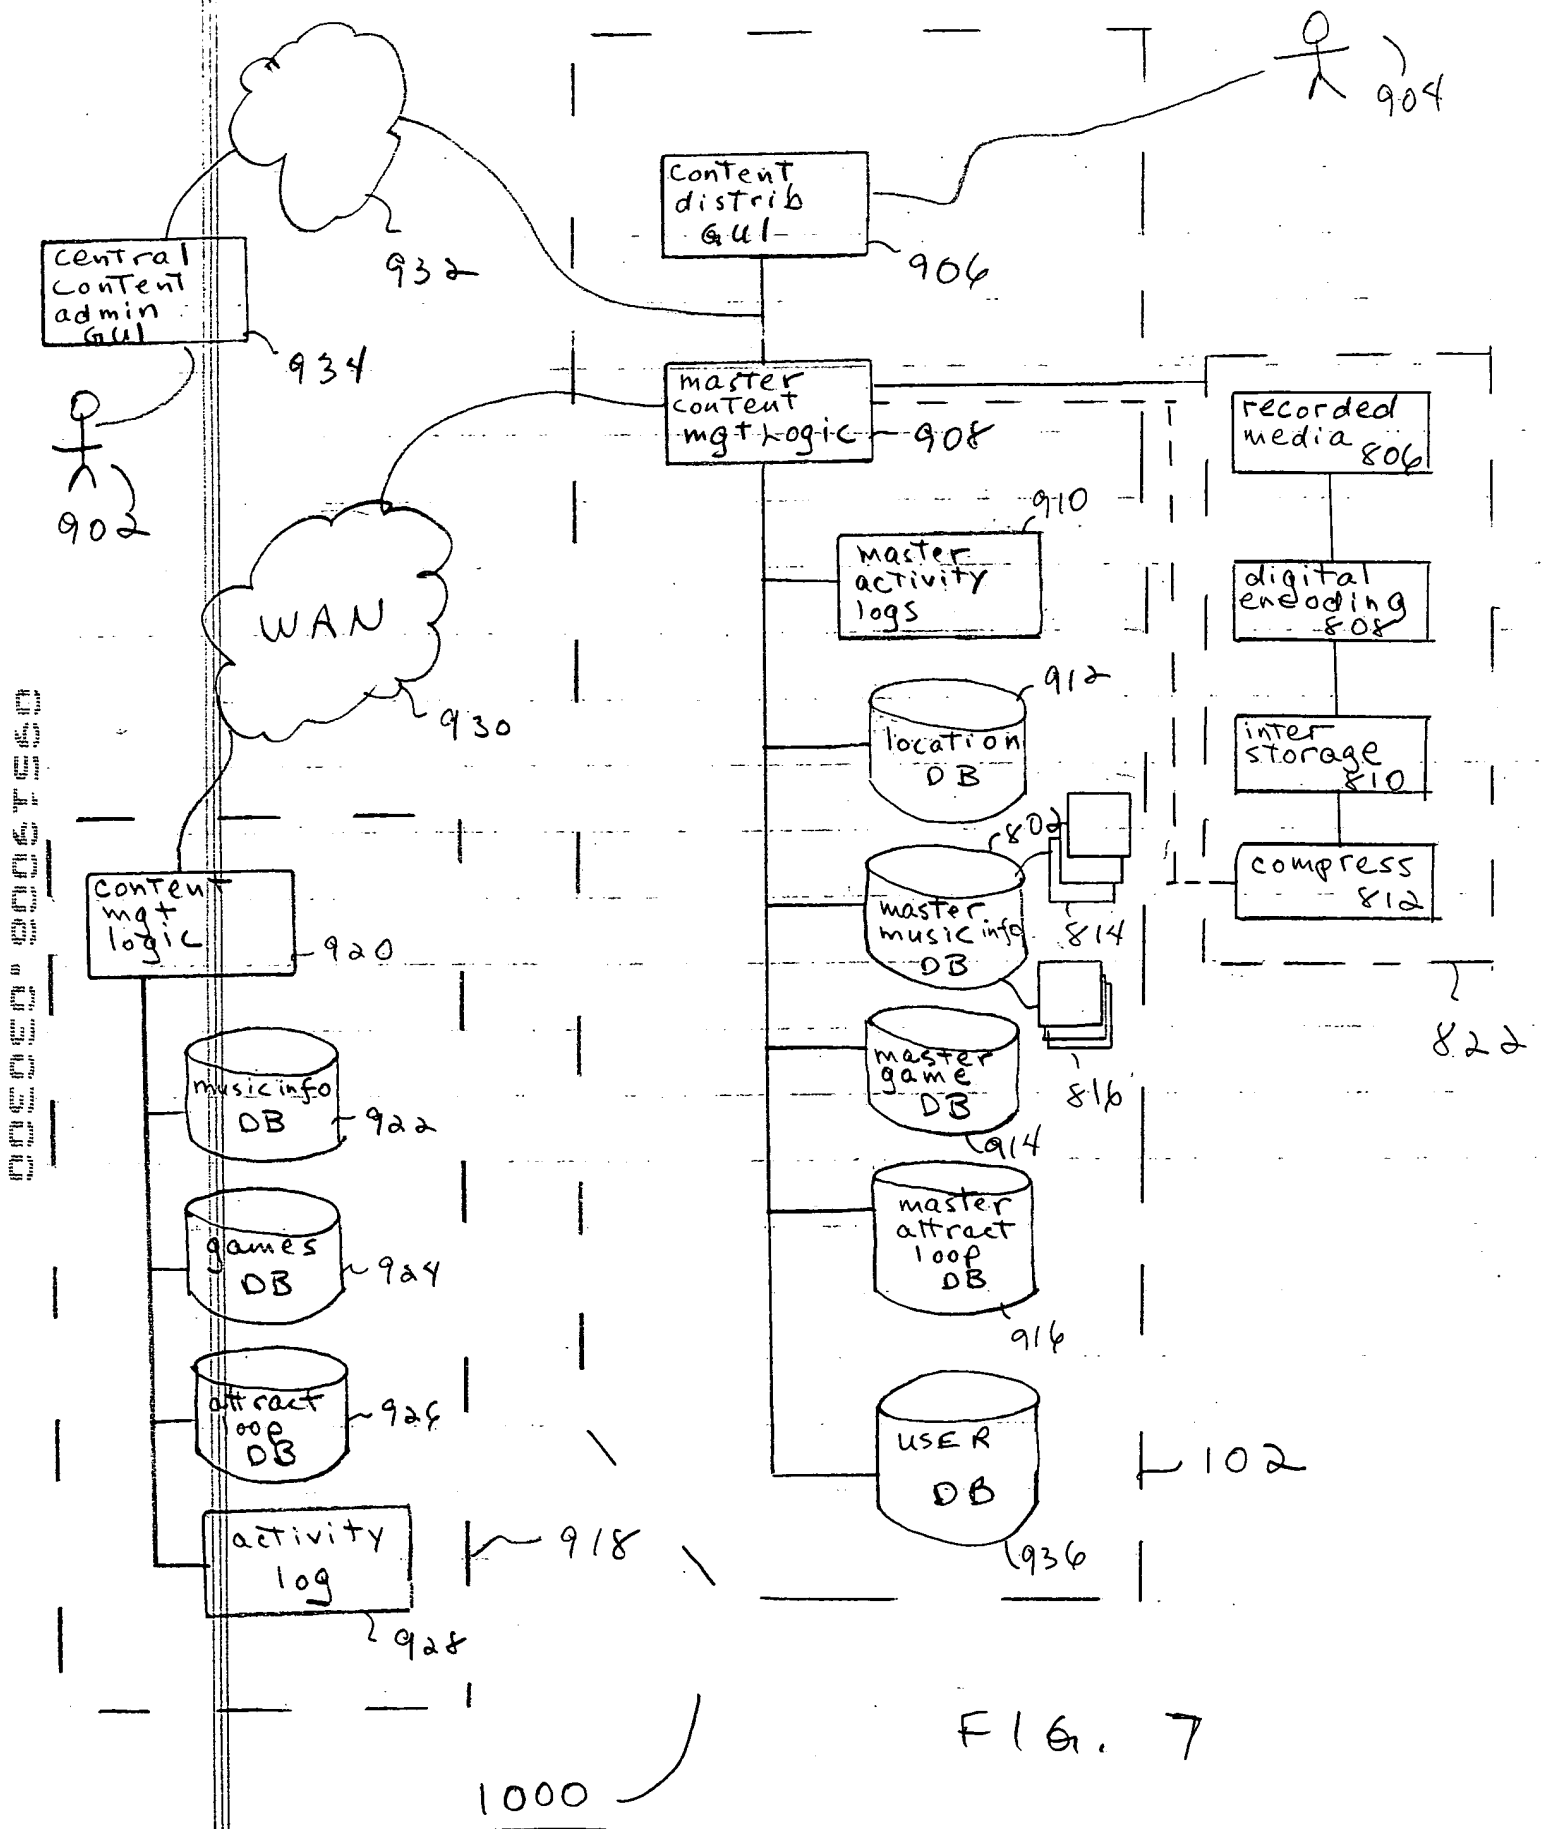 904
content
distrib
GUI
906
932
central
content
admin
GUI
934
902
master
content
mgt Logic
908
recorded
media
806
910
master
activity
logs
digital
encoding
808
WAN
930
912
location
DB
inter
storage
810
802
master
music info
DB
814
compress
812
content
mgt
logic
920
822
816
master
game
DB
914
music info
DB
922
master
attract
loop
DB
916
games
DB
924
attract
loop
DB
926
USER
DB
936
102
activity
log
928
918
FIG. 7
1000